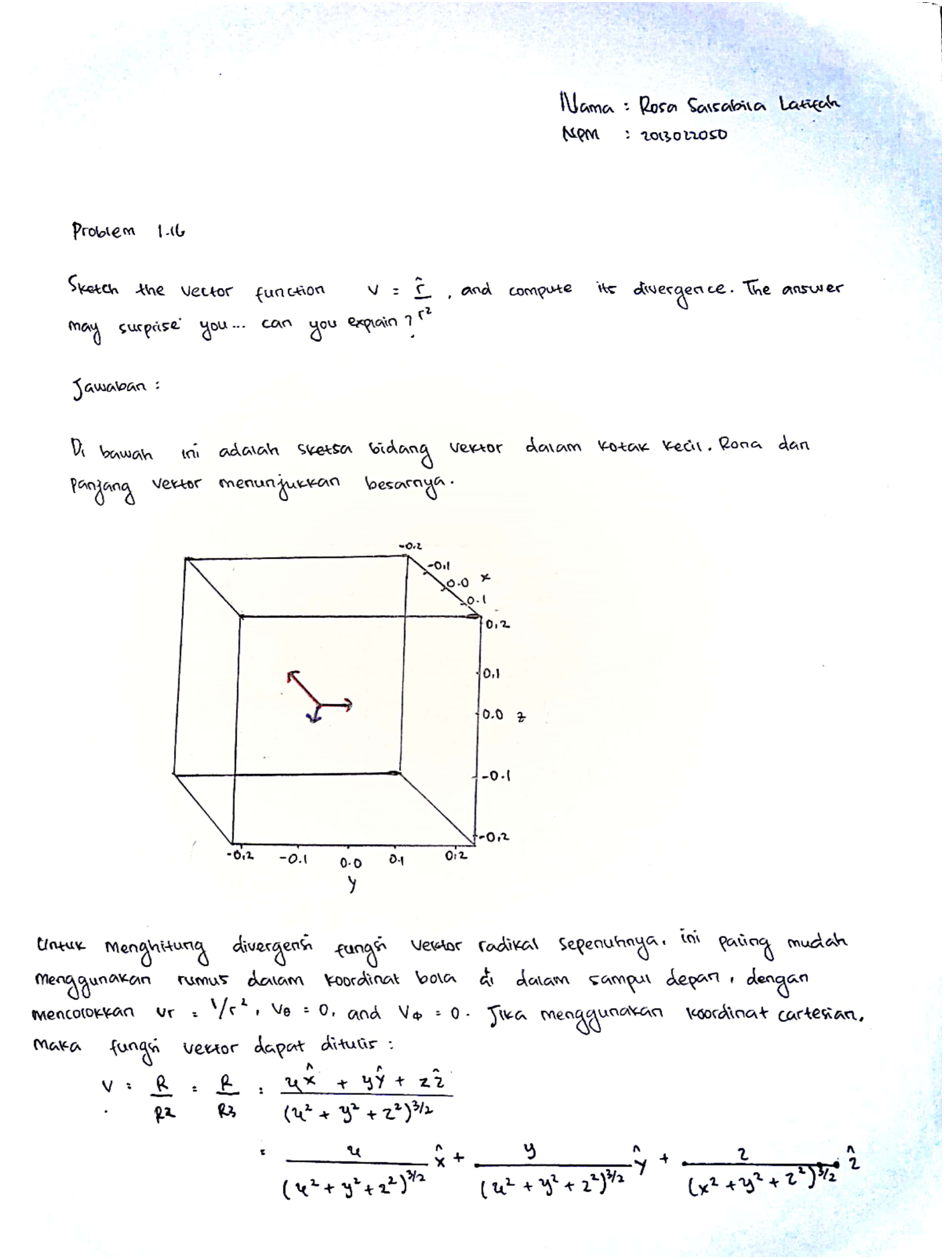 Nama : Rosa Salsabila Latifah
NPM : 2013022050
Problem 1.16
Sketch the vector function v = r̂/r² , and compute its divergence. The answer
may surprise you... can you explain ?
Jawaban :
Di bawah ini adalah sketsa bidang vektor dalam kotak kecil. Rona dan
Panjang vektor menunjukkan besarnya.
-0.2
-0.1
0.0 x
0.1
0.2
0.1
0.0 z
-0.1
-0.2
-0.2 -0.1 0.0 0.1 0.2
y
Untuk menghitung divergensi fungsi vektor radikal sepenuhnya, ini paling mudah
menggunakan rumus dalam koordinat bola di dalam sampul depan, dengan
mencolokkan vr = 1/r², Vθ = 0, and VΦ = 0. Jika menggunakan koordinat cartesian,
maka fungsi vektor dapat ditulis :
V = R/R2 = R/R3 = (x x̂ + y ŷ + z ẑ)/(x² + y² + z²)^3/2
= x/(x² + y² + z²)^3/2 x̂ + y/(x² + y² + z²)^3/2 ŷ + z/(x² + y² + z²)^3/2 ẑ